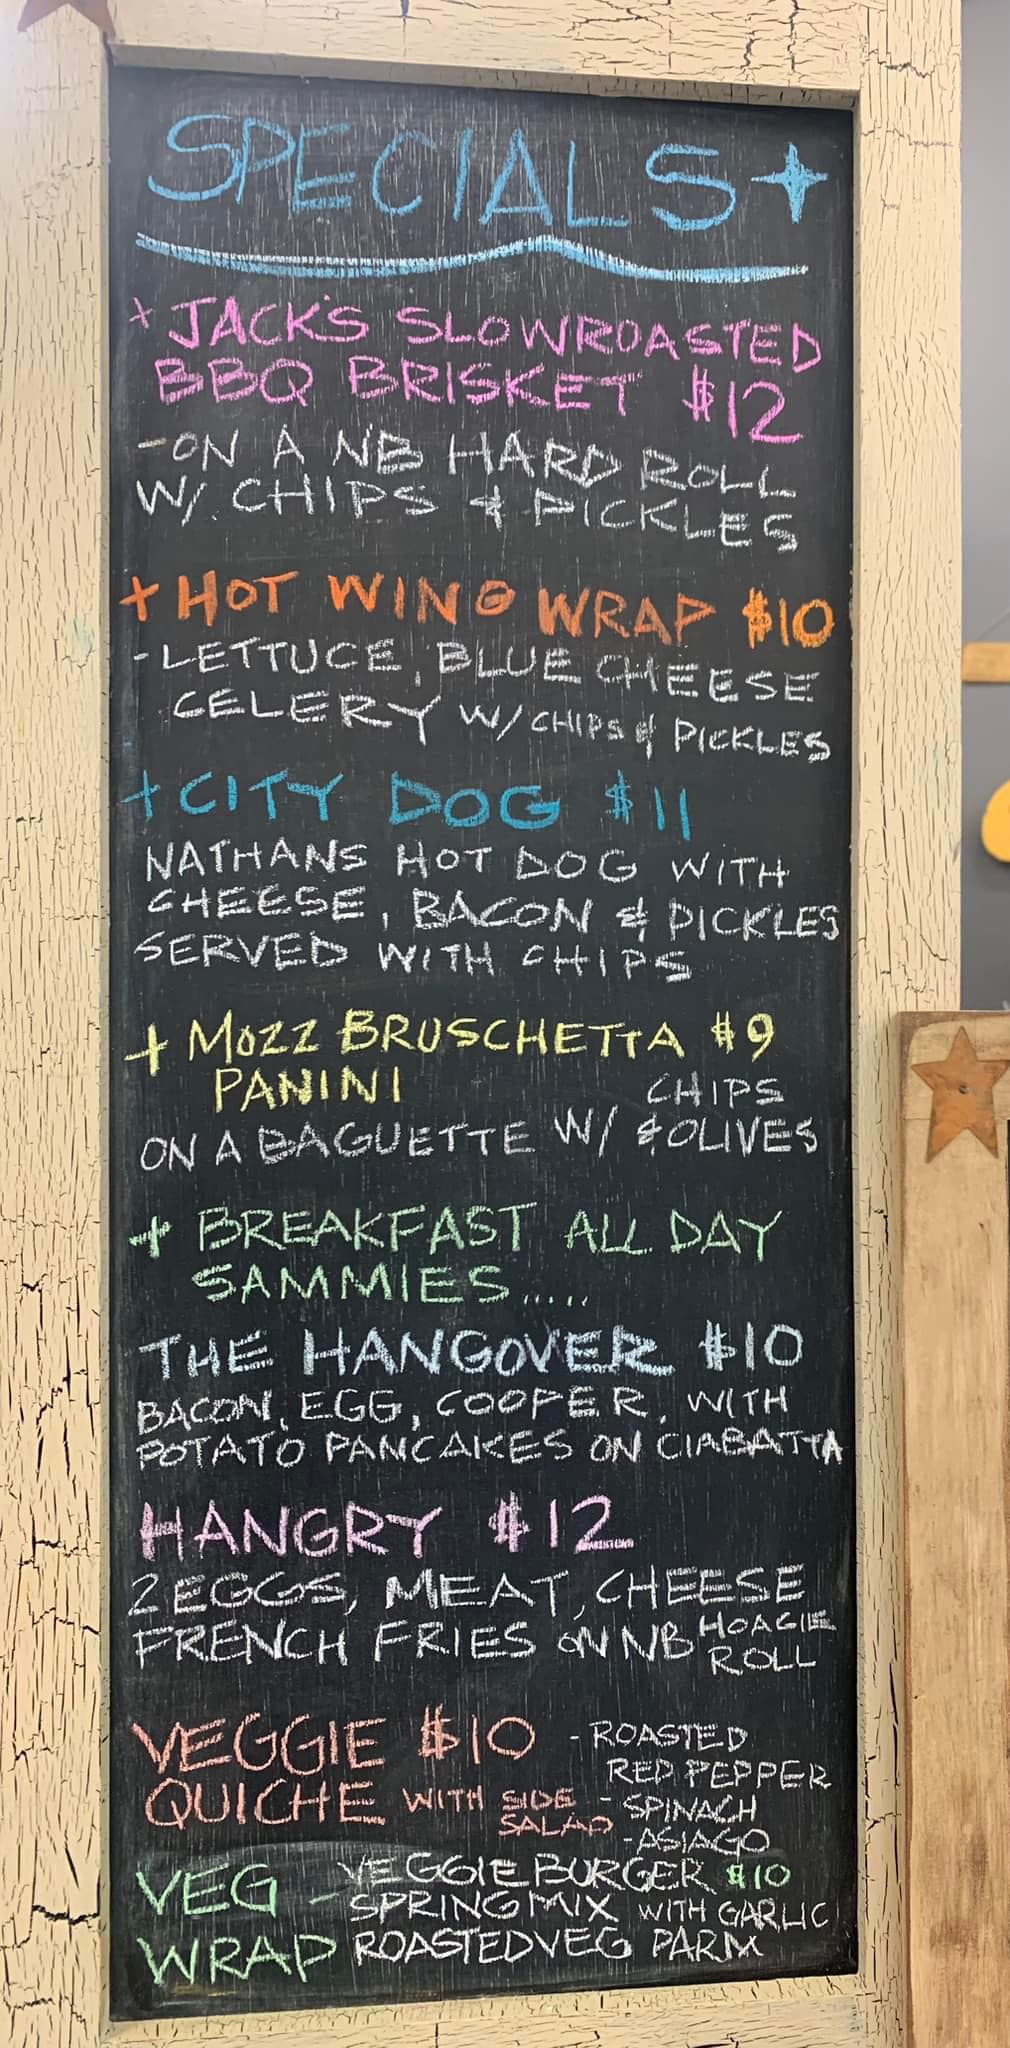 SPECIALS
+ JACK'S SLOWROASTED
BBQ BRISKET $12
-ON A NB HARD ROLL
W/ CHIPS & PICKLES
+ HOT WING WRAP $10
-LETTUCE, BLUE CHEESE
CELERY W/ CHIPS & PICKLES
+ CITY DOG $11
NATHANS HOT DOG WITH
CHEESE, BACON & PICKLES
SERVED WITH CHIPS
+ MOZZ BRUSCHETTA $9
PANINI
ON A BAGUETTE W/ CHIPS & OLIVES
+ BREAKFAST ALL DAY
SAMMIES.....
THE HANGOVER $10
BACON, EGG, COOPER, WITH
POTATO PANCAKES ON CIABATTA
HANGRY $12
2 EGGS, MEAT, CHEESE
FRENCH FRIES ON NB HOAGIE ROLL
VEGGIE $10
QUICHE WITH SIDE SALAD
- ROASTED
RED PEPPER
- SPINACH
- ASIAGO
VEG WRAP
- VEGGIE BURGER $10
SPRING MIX WITH GARLIC
ROASTED VEG PARM